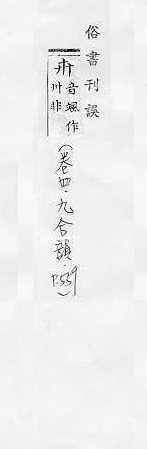 俗書刊誤
音颯作
卅非
(卷四.九合韻.P.559)